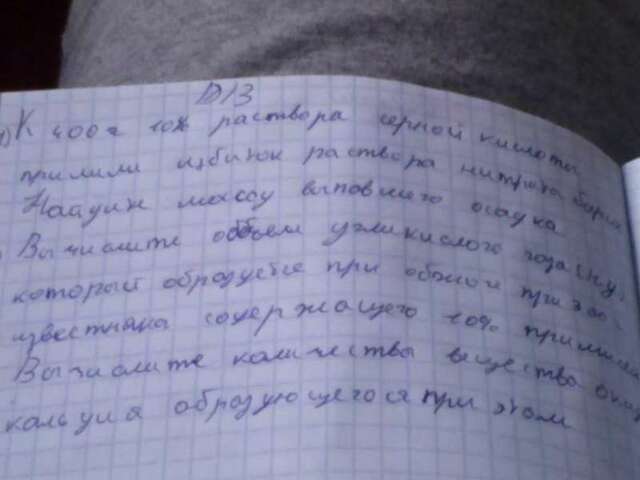 Д/З
1) К 400г 10% раствора серной кислоты
прилили избыток раствора нитрата бария
Найдите массу выпавшего осадка
Вычислите объем углекислого газа (н.у)
который образуется при обжиге
известняка содержащего 10% примесей
Вычислите количества вещества
кальция образующегося при этом